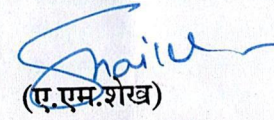 Shaikh
(ए.एम.शेख)